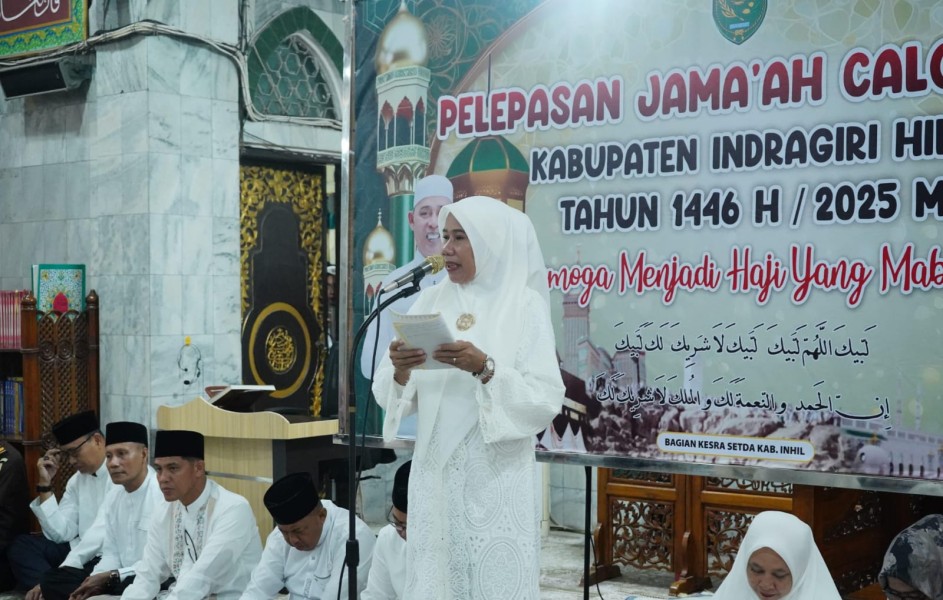 PELEPASAN JAMA'AH CALO
KABUPATEN INDRAGIRI HI
TAHUN 1446 H / 2025 M
moga Menjadi Haji Yang Mab
لَبَّيْكَ اللَّهُمَّ لَبَّيْكَ لَبَّيْكَ لَا شَرِيْكَ لَكَ لَبَّيْكَ
إِنَّ الْحَمْدَ وَالنِّعْمَةَ لَكَ وَالْمُلْكَ لَا شَرِيْكَ لَكَ
BAGIAN KESRA SETDA KAB. INHIL